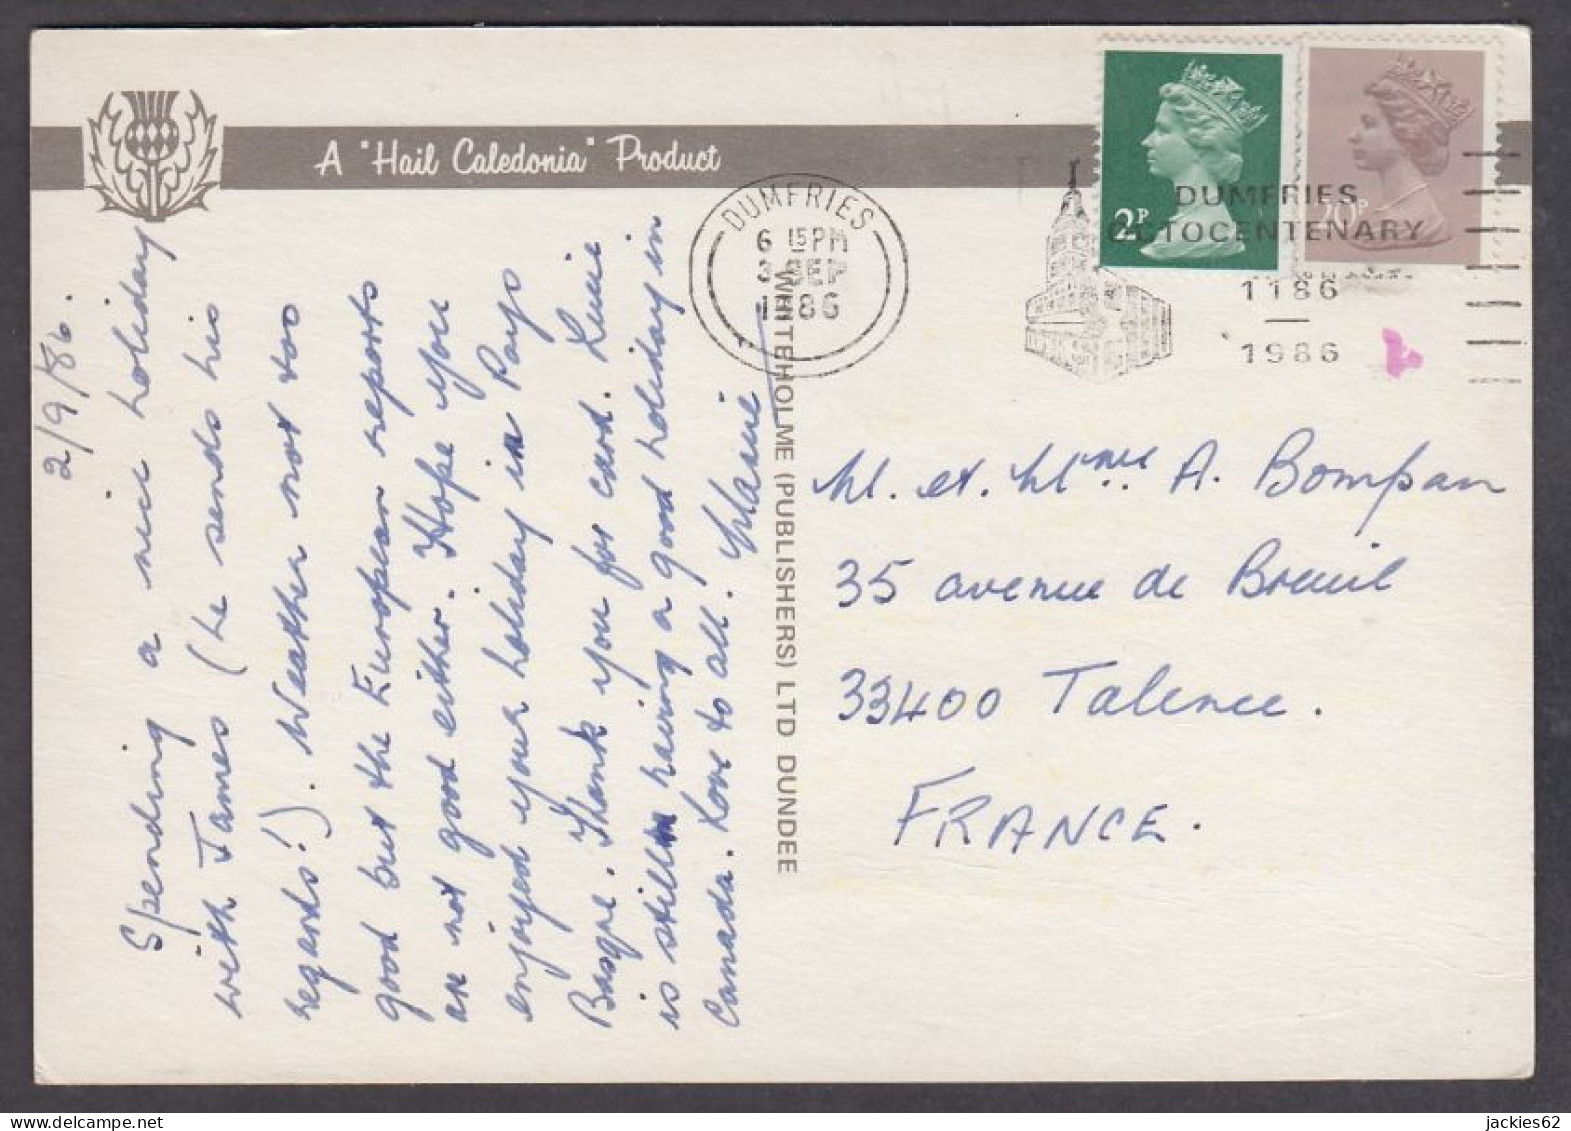 A "Hail Caledonia" Product
DUMFRIES
6 15PM
3 SEP
1986
DUMFRIES
OCTOCENTENARY
1186
1986
2P
20P
2/9/86.
Spending a nice holiday
with James (he sends his
regards!). Weather not too
good but the European reports
are not good either. Hope you
enjoyed your holiday in Pays
Basque. Thank you for card.
is still having a good holiday in
Canada. Love to all.
WHITEHOLME (PUBLISHERS) LTD DUNDEE
M. et. Mme. A. Bompan
35 avenue de Breuil
33400 Talence.
FRANCE.
jackies62